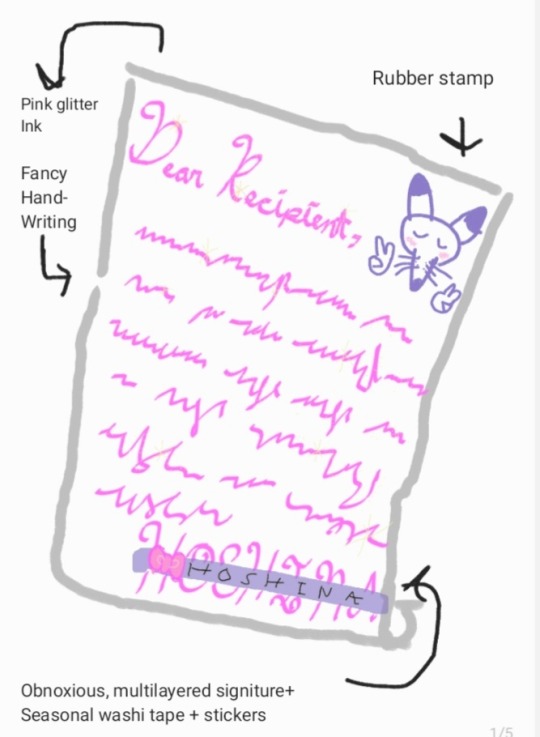 Rubber stamp
Pink glitter
Ink
Fancy
Hand-
Writing
Dear Recipient,
HOSHINA!
HOSHINA
Obnoxious, multilayered signiture+
Seasonal washi tape + stickers
1/5